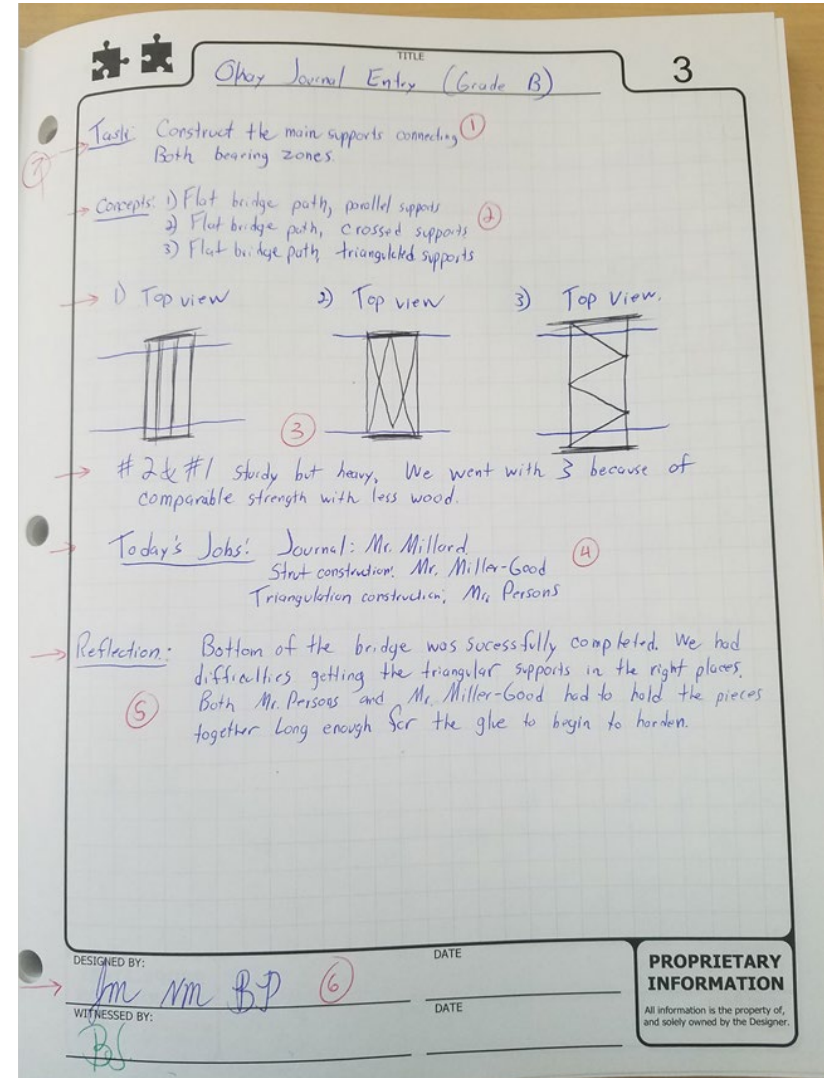 TITLE
Okay Journal Entry (Grade B)
3
Task: Construct the main supports connecting ①
Both bearing zones.
⑦
Concepts: 1) Flat bridge path, parallel supports
2) Flat bridge path, crossed supports ②
3) Flat bridge path, triangulated supports
1) Top view 2) Top view 3) Top View.
③
#2 & #1 sturdy but heavy. We went with 3 because of
comparable strength with less wood.
Today's Jobs: Journal: Mr. Millard ④
Strut construction: Mr. Miller-Good
Triangulation construction: Mr. Persons
Reflection: Bottom of the bridge was sucessfully completed. We had
difficulties getting the triangular supports in the right places.
⑤ Both Mr. Persons and Mr. Miller-Good had to hold the pieces
together long enough for the glue to begin to harden.
DESIGNED BY: DATE
Jm NM BP ⑥
WITNESSED BY: DATE
BS
PROPRIETARY
INFORMATION
All information is the property of,
and solely owned by the Designer.